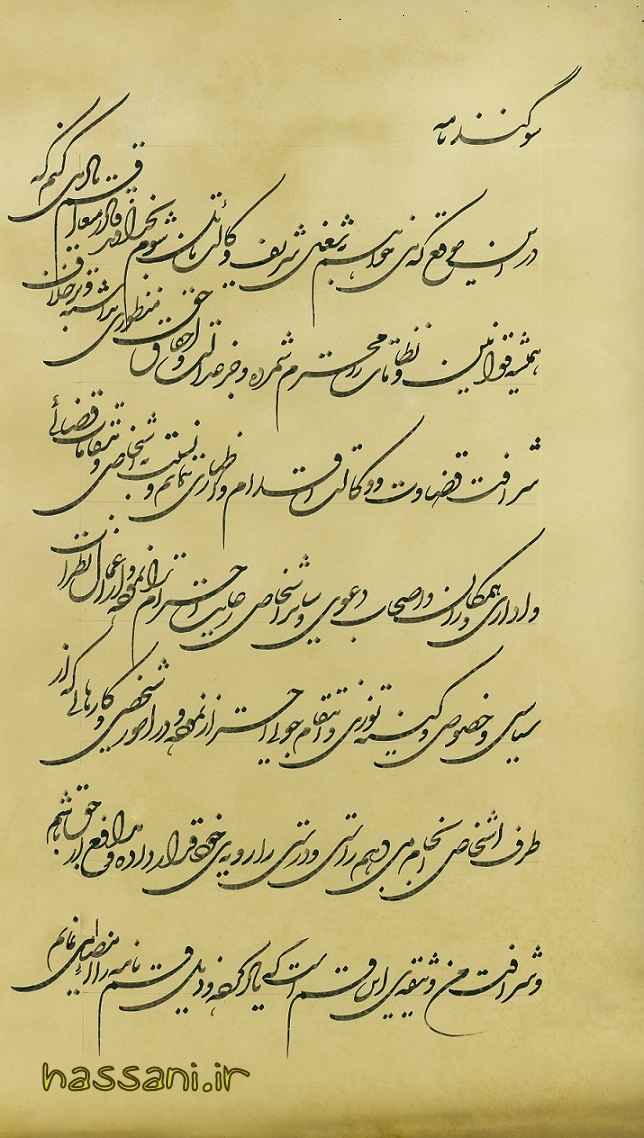 سوگندنامه
در این موقع که می خواهم به شغل شریف وکالت نائل شوم بخداوند قادر متعال قسم یاد می کنم که
همیشه قوانین و نظامات را محترم شمرده و جز عدالت و احقاق حق منظوری نداشته و بر خلاف
شرافت قضاوت و وکالت اقدام و اظهاری ننمایم و نسبت به اشخاص و مقامات قضائی
و اداری و همکاران و اصحاب دعوی و سایر اشخاص رعایت احترام را نموده و از اعمال نظریات
سیاسی و خصوصی و کینه توزی و انتقام جویی احتراز نموده و در امور شخصی و کارهائی که از
طرف اشخاص انجام می دهم راستی و درستی را رویه ی خود قرار داده و مدافع از حق باشم
و شرافت من وثیقه ی این قسم است که یاد کرده و ذیل قسم نامه را امضاء می نمایم
hassani.ir